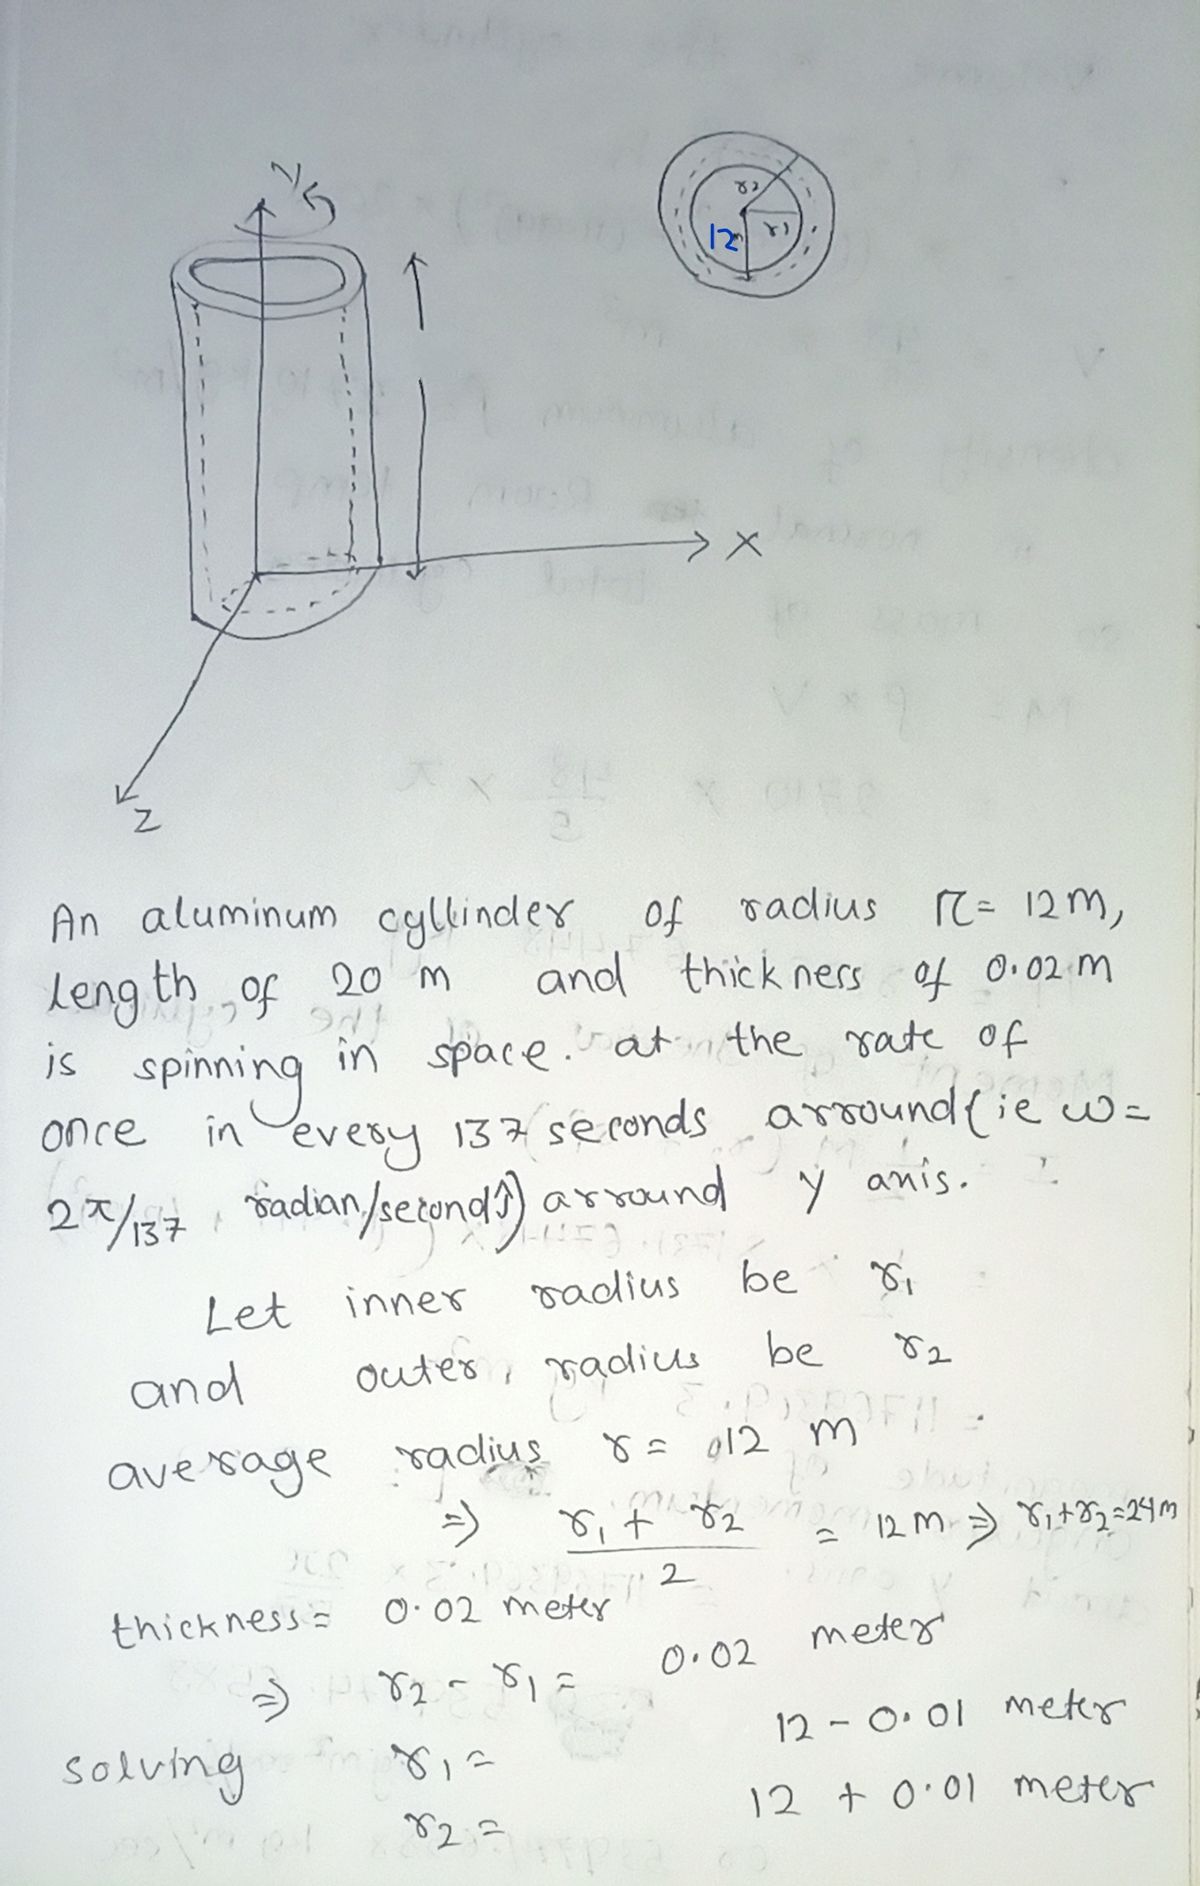 y
r2
12m
r1
X
Z
An aluminum cyllinder of radius r = 12m,
length of 20 m and thickness of 0.02 m
is spinning in space. at the rate of
once in every 137 seconds arround (ie ω =
2π/137 radian/second) arround y axis.
Let inner radius be r1
and outer radius be r2
average radius r = 12 m
=> r1 + r2 / 2 = 12m => r1+r2=24m
thickness = 0.02 meter
=> r2 - r1 = 0.02 meter
solving r1 = 12 - 0.01 meter
r2 = 12 + 0.01 meter